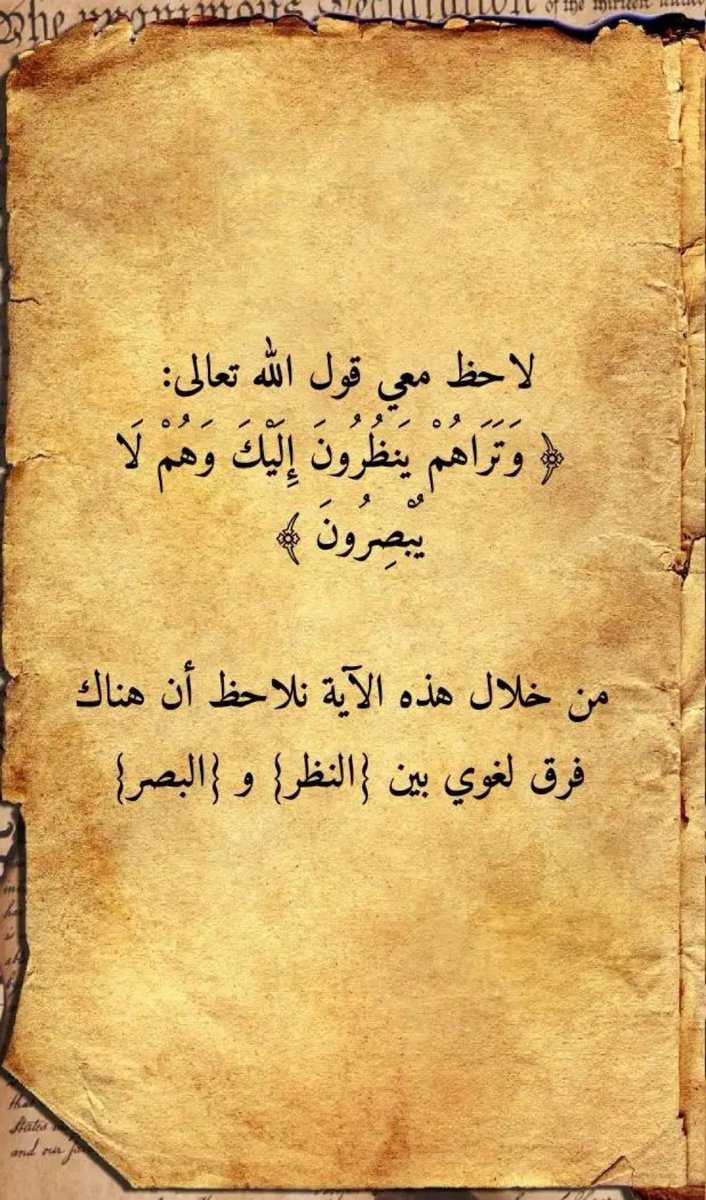 The unanimous Declaration of the thirteen
لاحظ معي قول الله تعالى:
﴿ وَتَرَاهُمْ يَنظُرُونَ إِلَيْكَ وَهُمْ لَا
يُبْصِرُونَ ﴾
من خلال هذه الآية نلاحظ أن هناك
فرق لغوي بين {النظر} و {البصر}
States
and our